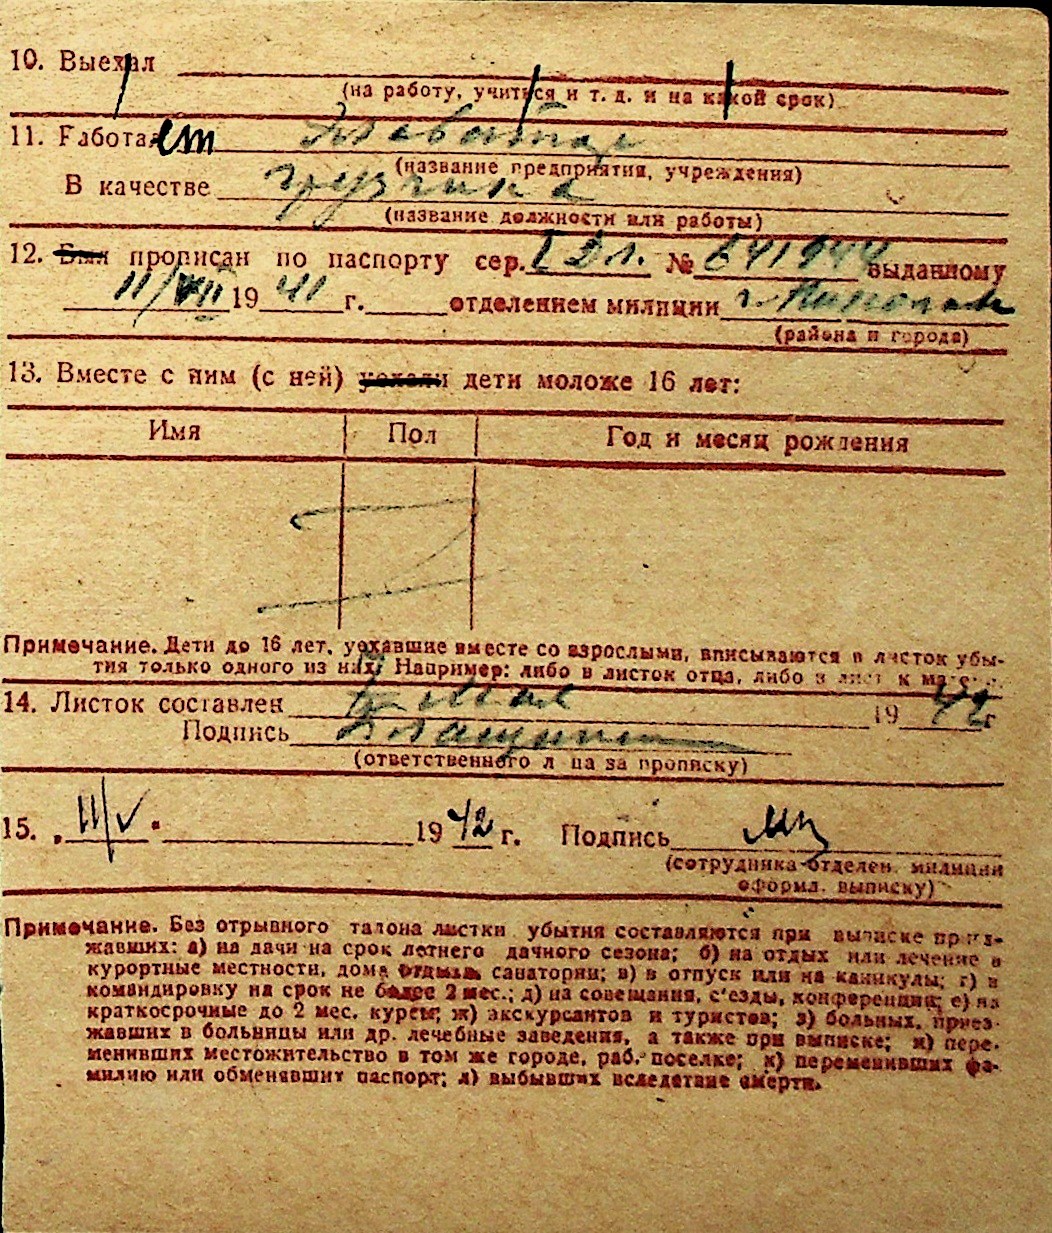 10. Выехал
(на работу, учиться и т. д. и на какой срок)
11. Работает
(название предприятия, учреждения)
В качестве грузчика
(название должности или работы)
12. Был прописан по паспорту сер. I ЭЛ. № 641944 выданному
11/VII 1941 г. отделением милиции г.
(района и города)
13. Вместе с ним (с ней) уехали дети моложе 16 лет:
Имя Пол Год и месяц рождения
Z
Примечание. Дети до 16 лет, уехавшие вместе со взрослыми, вписываются в листок убы-
тия только одного из них. Например: либо в листок отца, либо в лист к мате
14. Листок составлен 5 мая 1942 г
Подпись
(ответственного лица за прописку)
15. „11/V“ 1942 г. Подпись
(сотрудника отделен. милиции
оформл. выписку)
Примечание. Без отрывного талона листки убытия составляются при выписке приез-
жавших: а) на дачи на срок летнего дачного сезона; б) на отдых или лечение в
курортные местности, дома отдыха, санатории; в) в отпуск или на каникулы; г) в
командировку на срок не более 2 мес.; д) на совещания, с'езды, конференции; е) на
краткосрочные до 2 мес. курсы; ж) экскурсантов и туристов; з) больных, приез-
жавших в больницы или др. лечебные заведения, а также при выписке; и) пере-
менивших местожительство в том же городе, раб. поселке; к) переменивших фа-
милию или обменявшит паспорт; л) выбывших вследствие смерти.